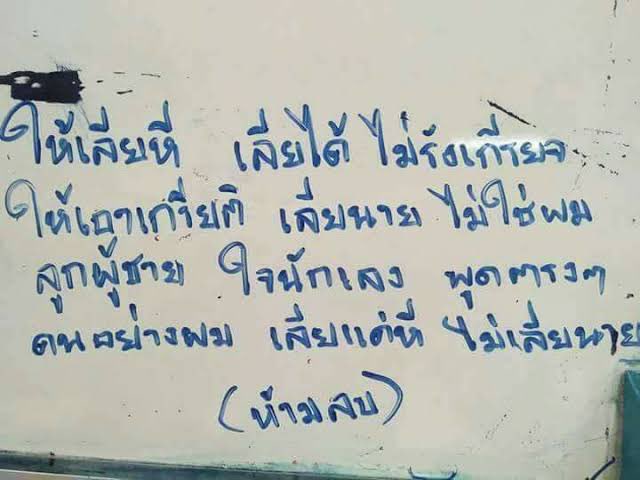 ให้เลียหี เลียได้ ไม่รังเกียจ
ให้เอาเกรียติ เลียนาย ไม่ใช่ผม
ลูกผู้ชาย ใจนักเลง พูดตรงๆ
คนอย่างผม เลียแค่หี ไม่เลียนาย
(ห้ามลบ)